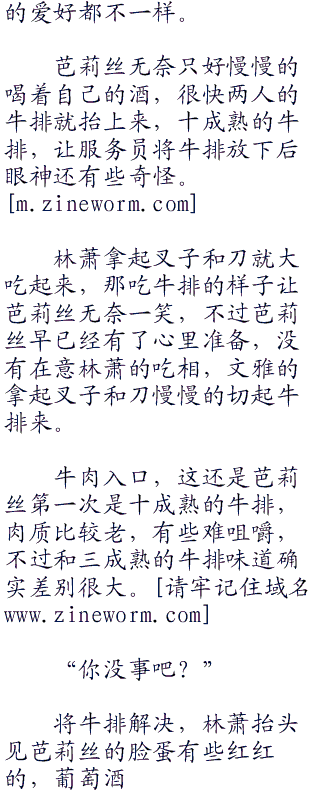 的爱好都不一样。
芭莉丝无奈只好慢慢的
喝着自己的酒，很快两人的
牛排就抬上来，十成熟的牛
排，让服务员将牛排放下后
眼神还有些奇怪。
[m.zineworm.com]
林萧拿起叉子和刀就大
吃起来，那吃牛排的样子让
芭莉丝无奈一笑，不过芭莉
丝早已经有了心里准备，没
有在意林萧的吃相，文雅的
拿起叉子和刀慢慢的切起牛
排来。
牛肉入口，这还是芭莉
丝第一次是十成熟的牛排，
肉质比较老，有些难咀嚼，
不过和三成熟的牛排味道确
实差别很大。[请牢记住域名
www.zineworm.com]
“你没事吧？”
将牛排解决，林萧抬头
见芭莉丝的脸蛋有些红红
的，葡萄酒